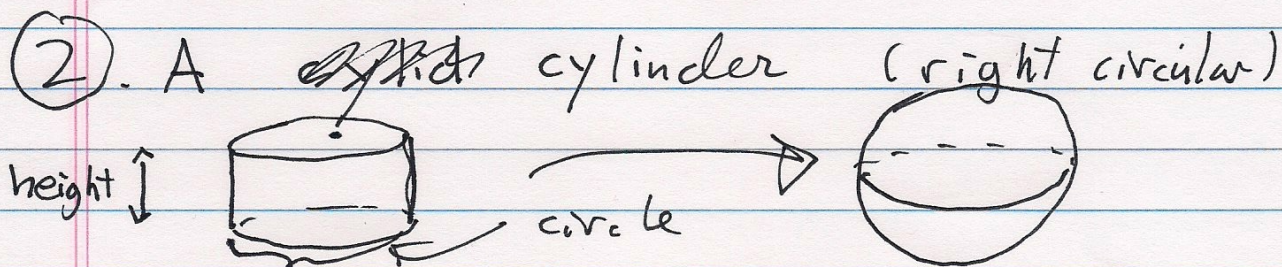 ②. A cylinder (right circular)
height
circle